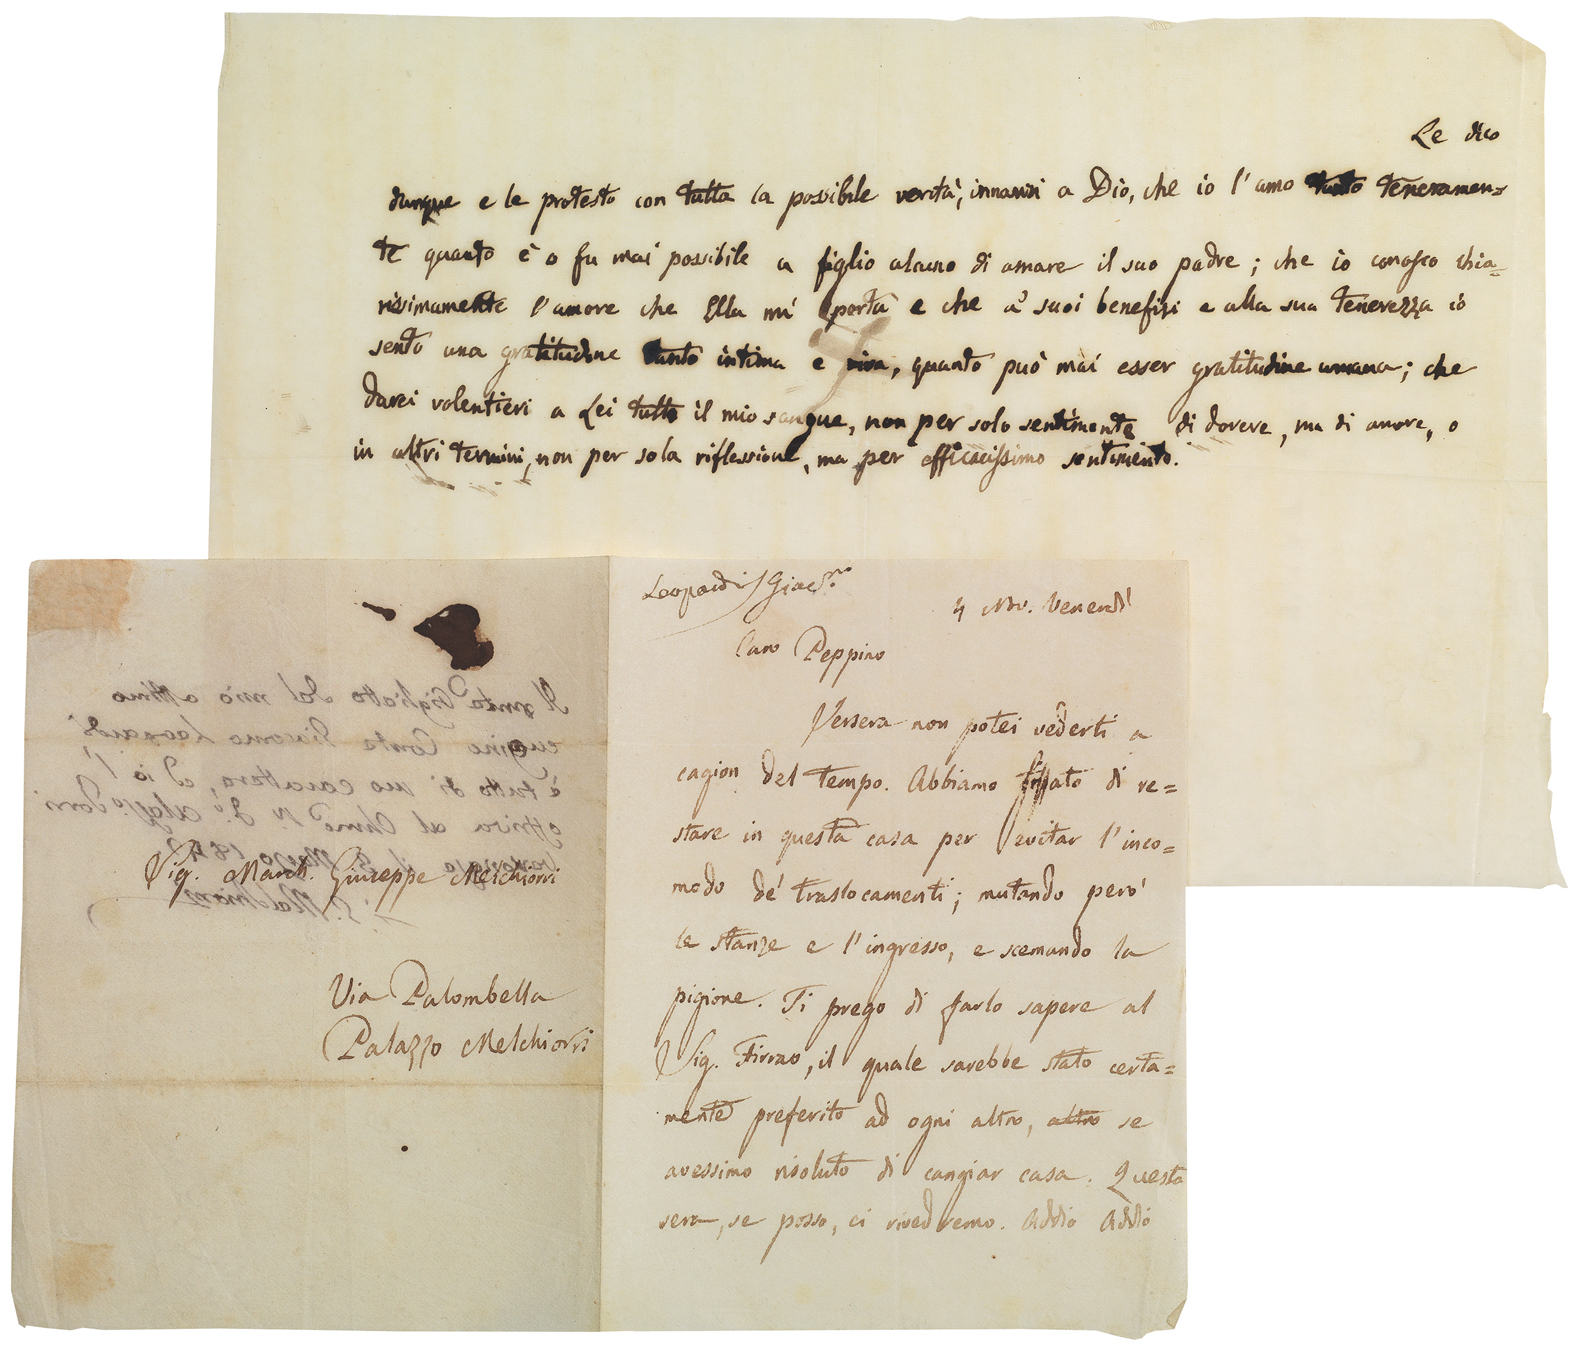 Le dico
dunque e le protesto con tutta la possibile verità, innanzi a Dio, che io l'amo tanto teneramen=
te quanto è o fu mai possibile a figlio alcuno di amare il suo padre; che io conosco chia=
rissimamente l'amore che Ella mi porta e che a' suoi benefizi e alla sua tenerezza io
sento una gratitudine tanto intima e viva, quanto può mai esser gratitudine umana; che
darei volentieri a Lei tutto il mio sangue, non per solo sentimento di dovere, ma di amore, o
in altri termini, non per sola riflessione, ma per efficacissimo sentimento.
Leopardi Giac.mo
4 Nov. Venerdì
Caro Peppino
Iersera non potei vederti a
cagion del tempo. Abbiamo fissato di re=
stare in questa casa per evitar l'inco=
modo de' traslocamenti; mutando però
le stanze e l'ingresso, e scemando la
pigione. Ti prego di farlo sapere al
Sig. Firrao, il quale sarebbe stato certa=
mente preferito ad ogni altro, altro se
avessimo risoluto di cangiar casa. Questa
sera, se posso, ci rivedremo. Addio Addio
Il biglietto del mio ottimo
cugino Conte Giacomo Leopardi
è tutto di suo carattere, ed io l'
offriva al
Sig. March. Giuseppe Melchiorri
Via Palombella
Palazzo Melchiorri